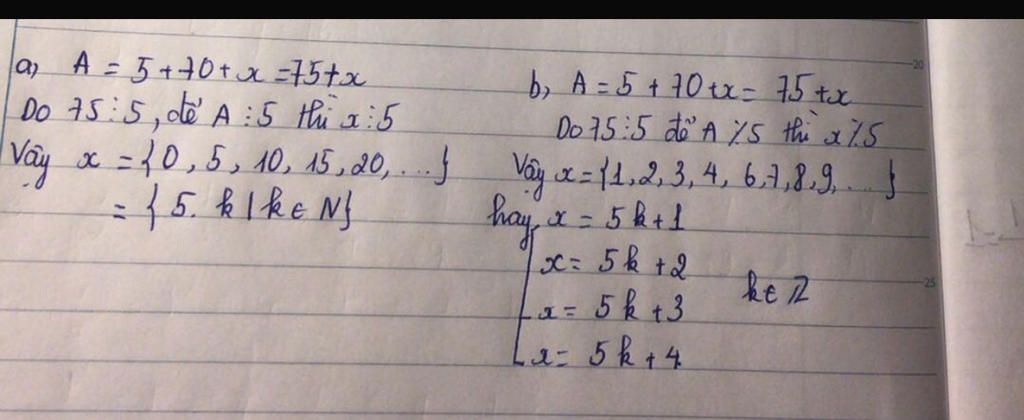 a, A = 5 + 70 + x = 75 + x
Do 75 ⋮ 5, để A ⋮ 5 thì x ⋮ 5
Vậy x = {0, 5, 10, 15, 20, ...}
= {5. k | k ∈ N}
b, A = 5 + 70 + x = 75 + x
Do 75 ⋮ 5 để A ⋮̸ 5 thì x ⋮̸ 5
Vậy x = {1, 2, 3, 4, 6, 7, 8, 9, ...}
hay x = 5k + 1
x = 5k + 2
k ∈ Z
x = 5k + 3
x = 5k + 4
20
25